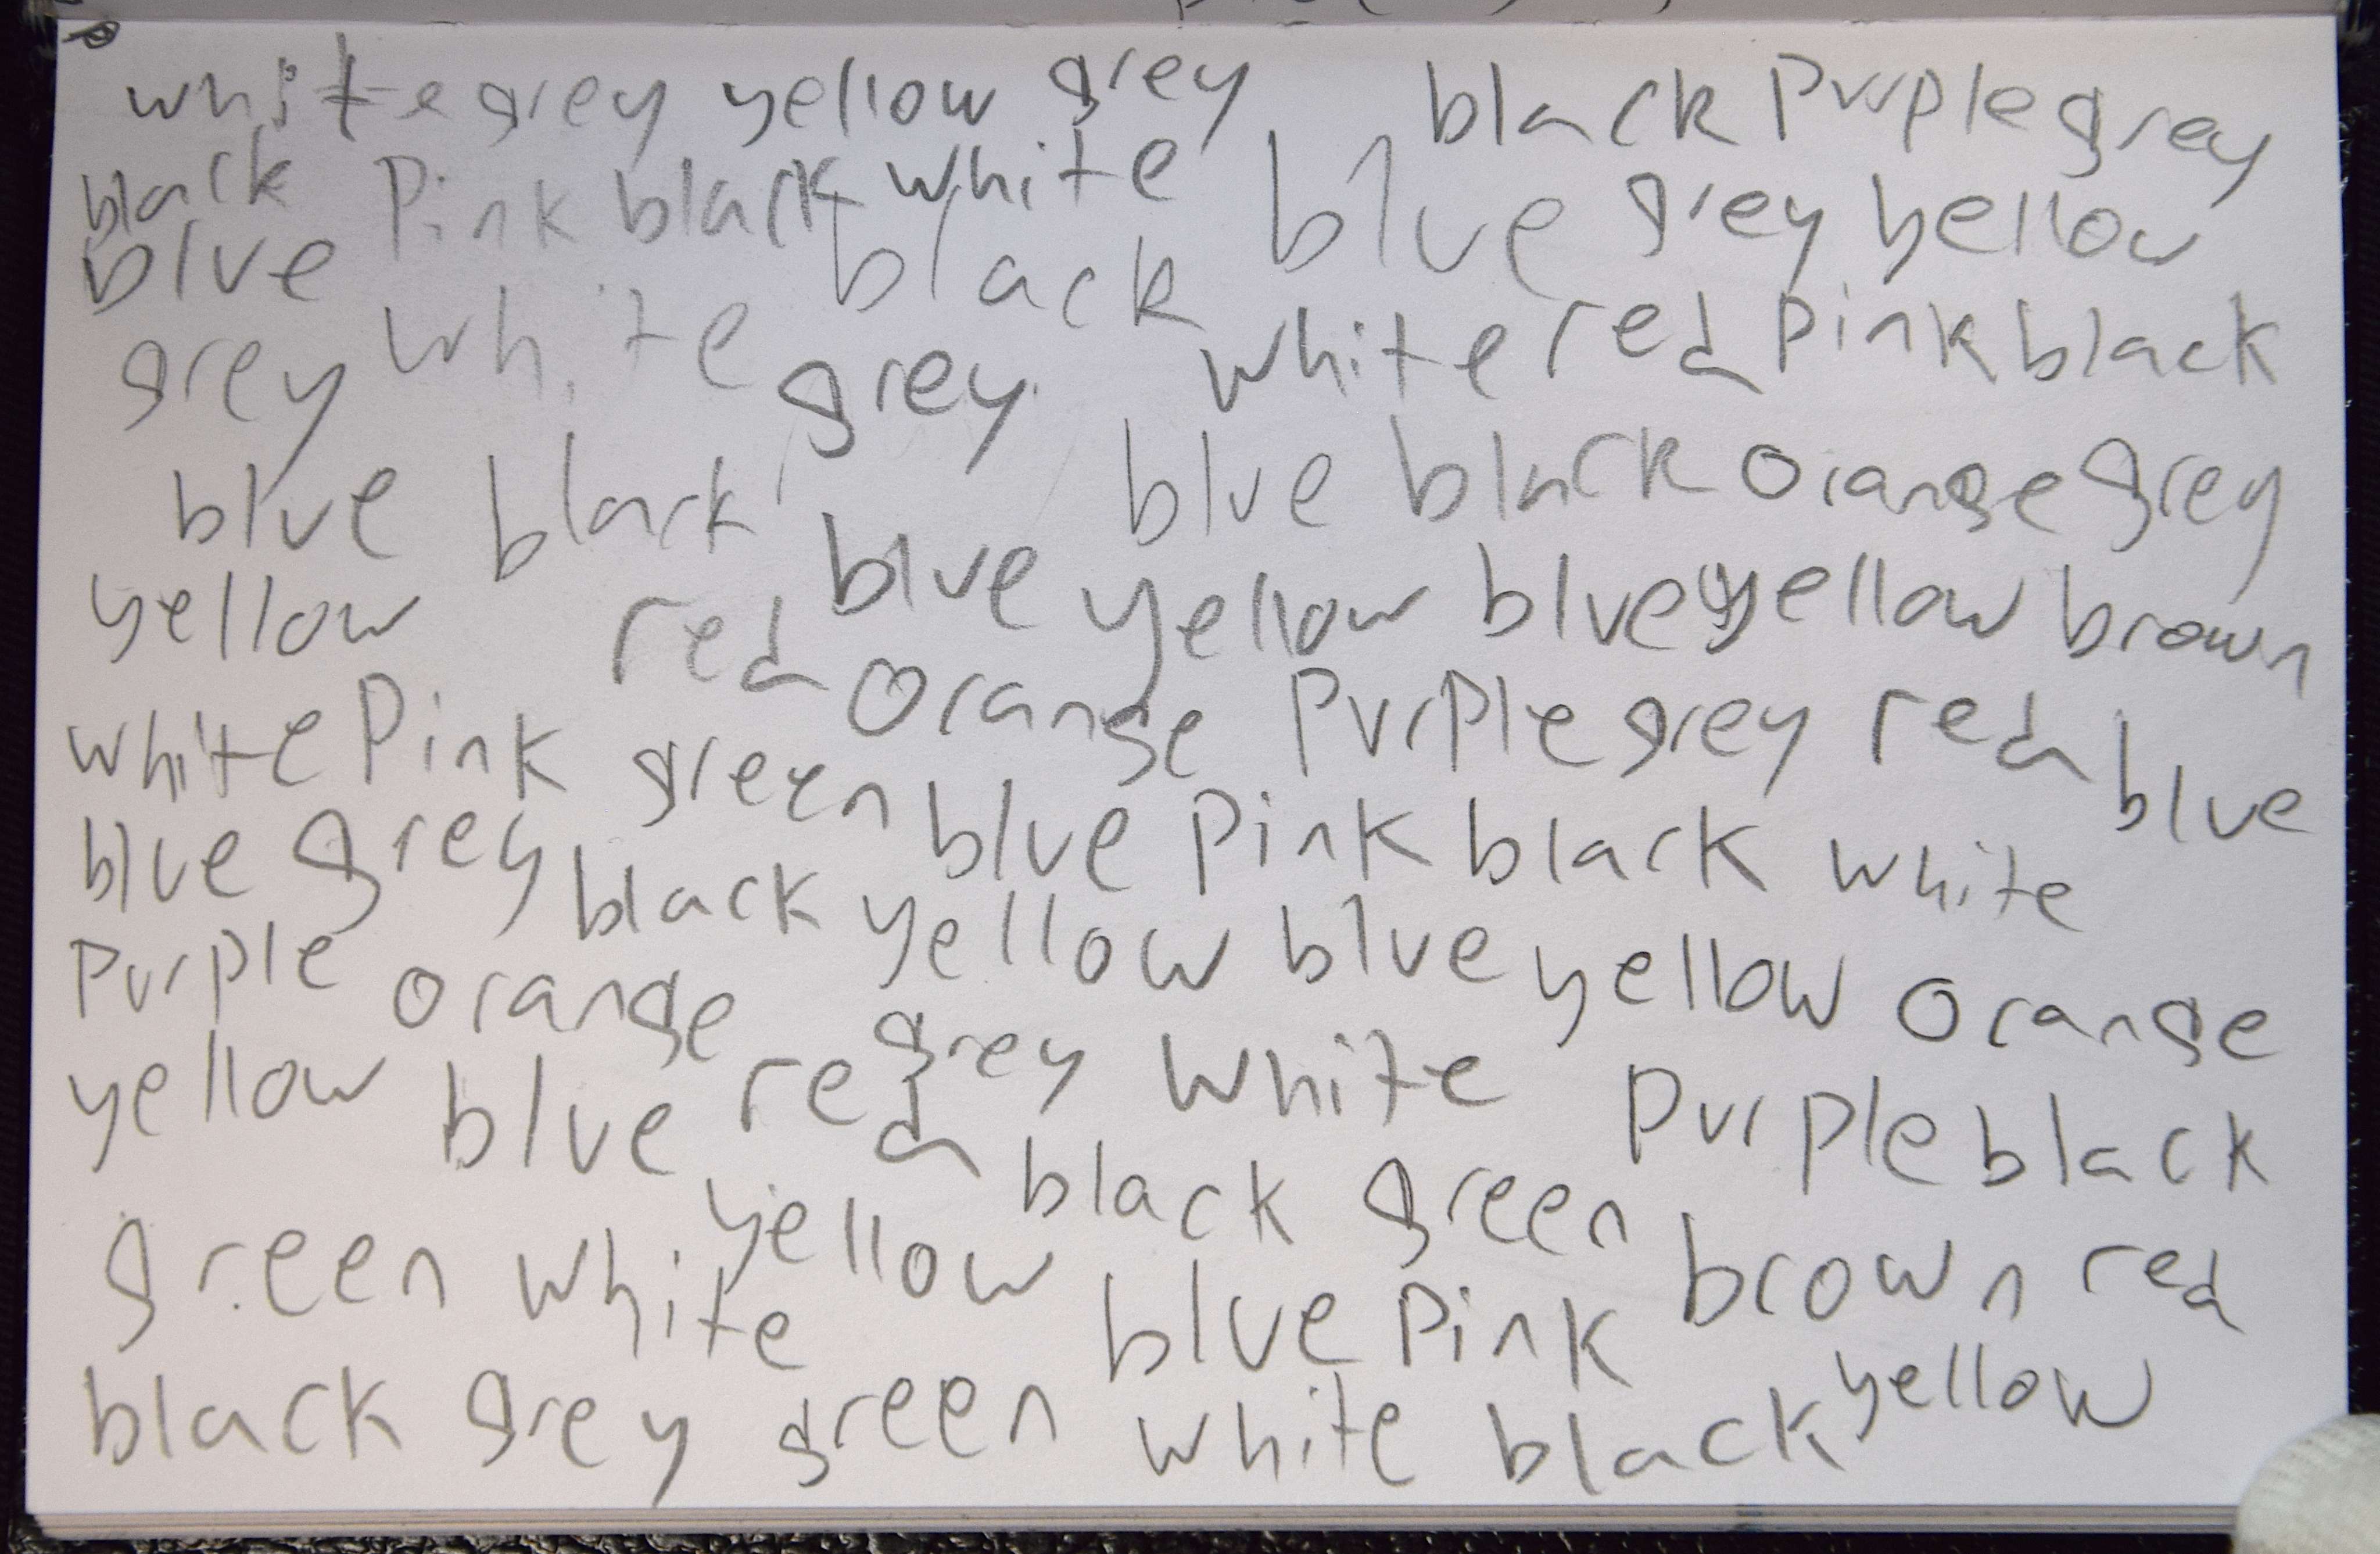 white grey yellow grey black purple grey
black pink black white blue grey yellow
blue black
grey white grey white red pink black
blue black blue black orange grey
yellow red blue yellow blue yellow brown
white pink green orange purple grey red blue
blue grey black blue pink black white
purple orange yellow blue yellow orange
yellow blue red grey white purple black
green white yellow black green brown red
blue pink
black grey green white black yellow